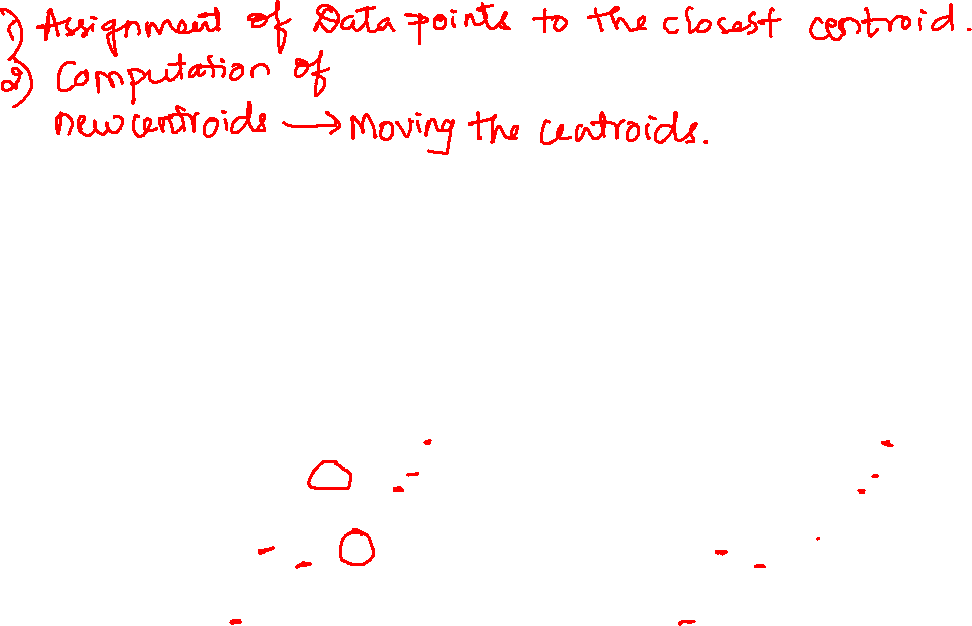 1) Assignment of Data points to the closest centroid.
2) Computation of
new centroids → Moving the centroids.